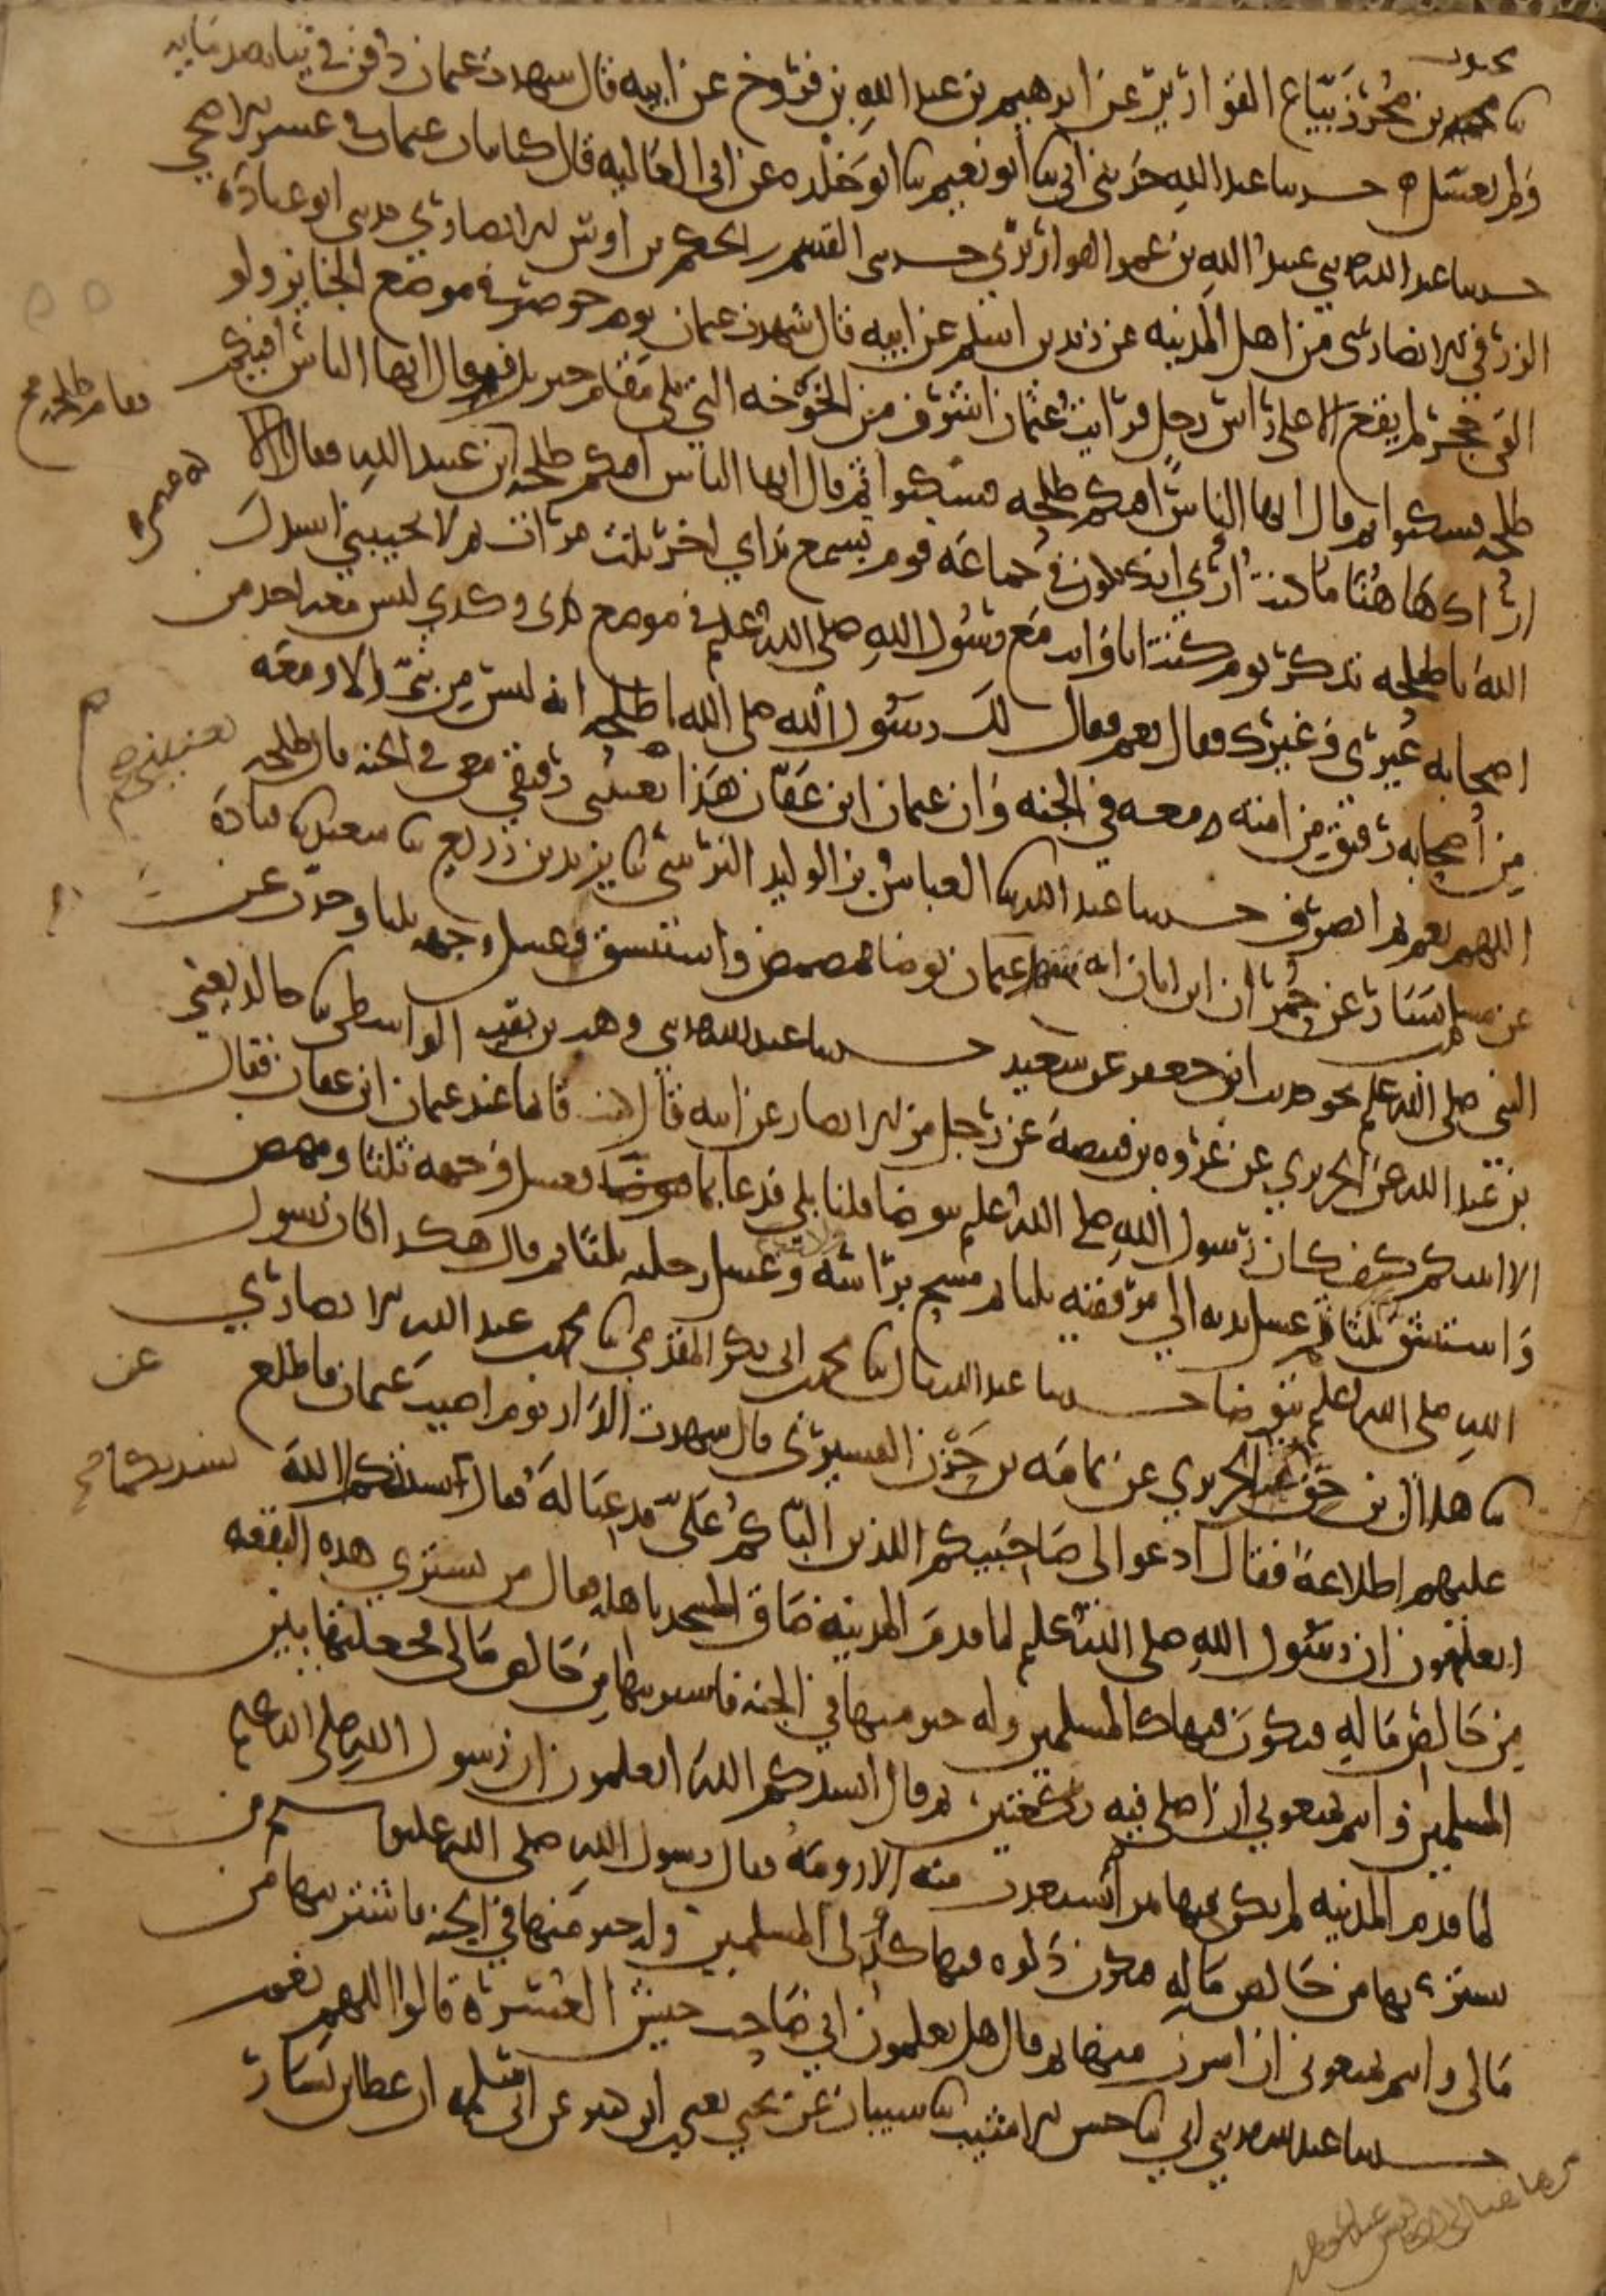 محبوب
ثنا محمد بن محرز بياع القوارير عن ابرهيم بن عبد الله بن فروخ عن ابيه قال شهدت عثمان دفن في ثيابه بدمايه
ولم يغسل ه حدثنا عبد الله حدثني ابي ثنا ابو نعيم ثنا ابو خلده عن ابي العاليه قال كنا بباب عثمان في عشر الاضحى
حدثنا عبد الله حدثني عبيد الله بن عمر القواريري حدثني القسم بن الحكم بن اوس الانصاري حدثني ابو عبادة
الزرقي الانصاري من اهل المدينه عن زيد بن اسلم عن ابيه قال شهدت عثمان يوم حوصر في موضع الجنايز ولو
القي حجر لم يقع الا على راس رجل فرايت عثمان اشرف من الخوخه التي تلي مقام جبريل فقال ايها الناس افيكم
طلحه فسكتوا ثم قال ايها الناس افيكم طلحه فسكتوا ثم قال ايها الناس افيكم طلحه بن عبيد الله فقال الا
اراك هاهنا ما كنت ارى انك تكون في جماعه قوم تسمع نداي اخر ثلث مرات ثم لا تجيبني انشدك
الله يا طلحه تذكر يوم كنت انا وانت مع رسول الله صلى الله عليه في موضع كذى وكذي ليس معه احد من
اصحابه غيري وغيرك فقال نعم فقال لك رسول الله صلى الله يا طلحه انه ليس من نبي الا ومعه
من اصحابه رفيق من امته معه في الجنه وان عثمان ابن عفان هذا يعنيني رفيقي معي في الجنه قال طلحه
اللهم نعم ثم انصرف حدثنا عبد الله ثنا العباس بن الوليد النرسي ثنا يزيد بن زريع ثنا سعيد ثنا قتادة
عن مسلم بن يسار عن حمران ابن ابان انه شهد عثمان توضا فمضمض واستنشق وغسل وجهه ثلثا وحدث عن
النبي صلى الله عليه نحو حديث ابن جعفر عن سعيد حدثنا عبد الله حدثني وهب بن بقيه الواسطي ثنا خالد يعني
بن عبد الله عن الجريري عن عروه بن قبيصة عن رجل من الانصار عن ابيه قال كنت قايما عند عثمان ابن عفان فقال
الا انبيكم كيف كان رسول الله صلى الله عليه يتوضا قلنا بلى فدعا بما فغسل وجهه ثلثا ومضمض
واستنشق ثلثا ثم غسل يديه الى مرفقيه ثلثا ثم مسح براسه وغسل رجليه ثلثا ثم قال هكذا كان رسول
الله صلى الله عليه يتوضا حدثنا عبد الله قال ثنا محمد بن ابي بكر المقدمي ثنا محمد بن عبد الله الانصاري
ثنا هلال بن حق عن الجريري عن ثمامه بن حزن القشيري قال شهدت الدار يوم اصيب عثمان فاطلع
عليهم اطلاعة فقال ادعوا لي صاحبيكم اللذين الباكم علي فدعيا له فقال انشدكم الله
اتعلمون ان رسول الله صلى الله عليه لما قدم المدينه ضاق المسجد باهله فقال من يشتري هذه البقعه
من خالص ماله فيكون فيها كالمسلمين وله خير منها في الجنه فاشتريتها من خالص مالي فجعلتها بين
المسلمين وانتم تمنعوني ان اصلي فيه ركعتين ثم قال انشدكم الله اتعلمون ان رسول الله صلى الله عليه
لما قدم المدينه لم يكن فيها بير يستعذب منه الا رومة فقال رسول الله صلى الله عليه وسلم من
يشتريها من خالص ماله فيكون دلوه فيها كدلي المسلمين وله خير منها في الجنه فاشتريتها من
مالي وانتم تمنعوني ان اشرب منها ثم قال هل تعلمون اني صاحب جيش العسرة قالوا اللهم نعم
حدثنا عبد الله حدثني ابي ثنا حسن الاشيب ثنا شيبان عن يحيى يعني ابن ابي كثير عن ابي سلمه ان عطا بن يسار
فقام طلحه صح
عن